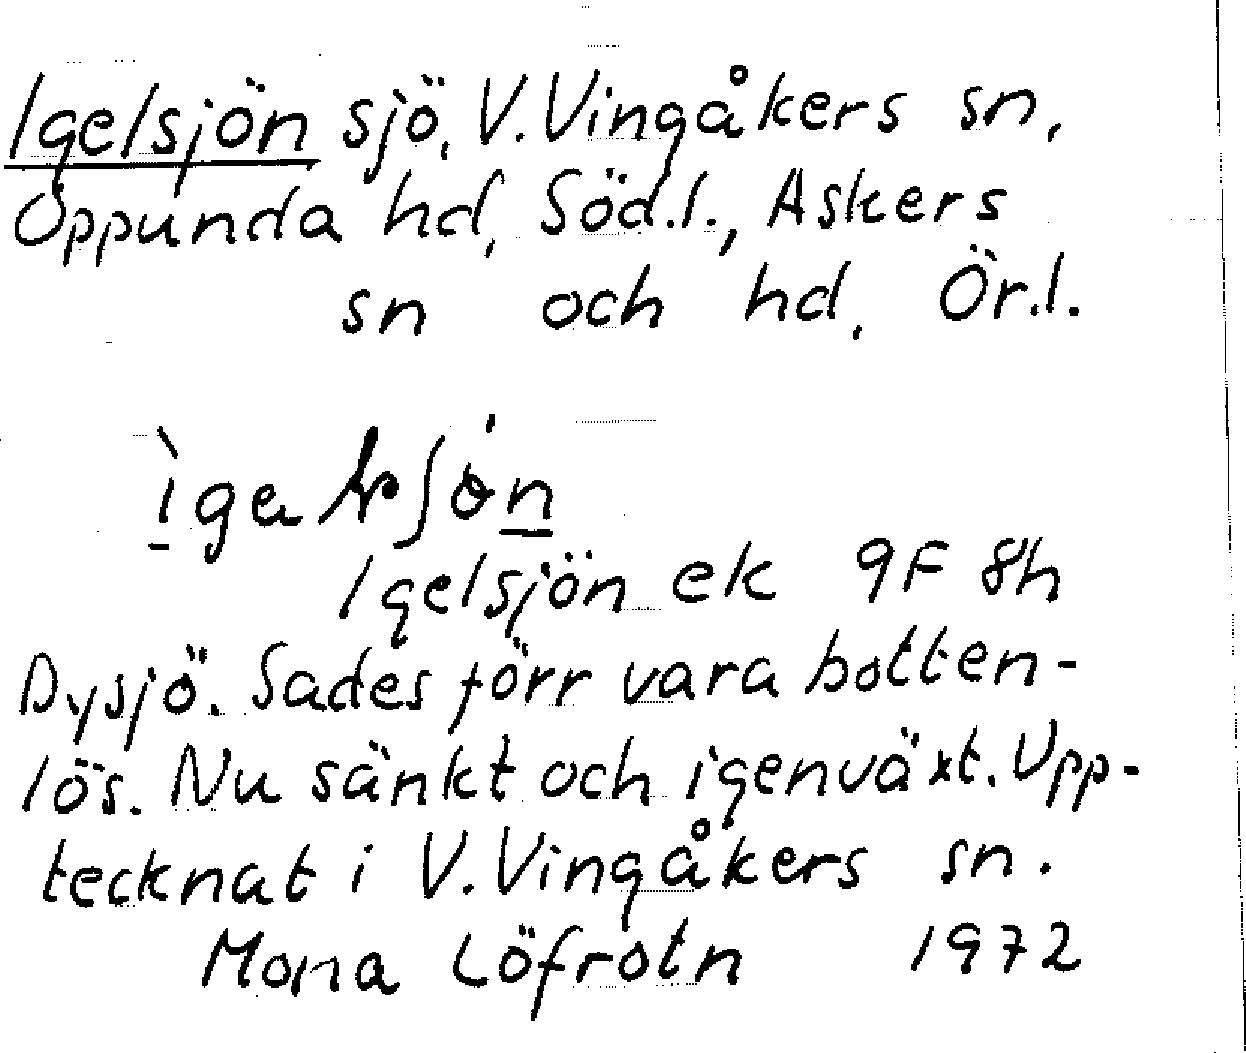 Igelsjön sjö, V. Vingåkers sn,
Oppunda hd, Söd.l., Askers
sn och hd, Ör.l.
Igelsjön ek 9F 8h
Dysjö. Sades förr vara botten-
lös. Nu sänkt och igenväxt. Upp-
tecknat i V. Vingåkers sn.
Mona Löfrotn 1972